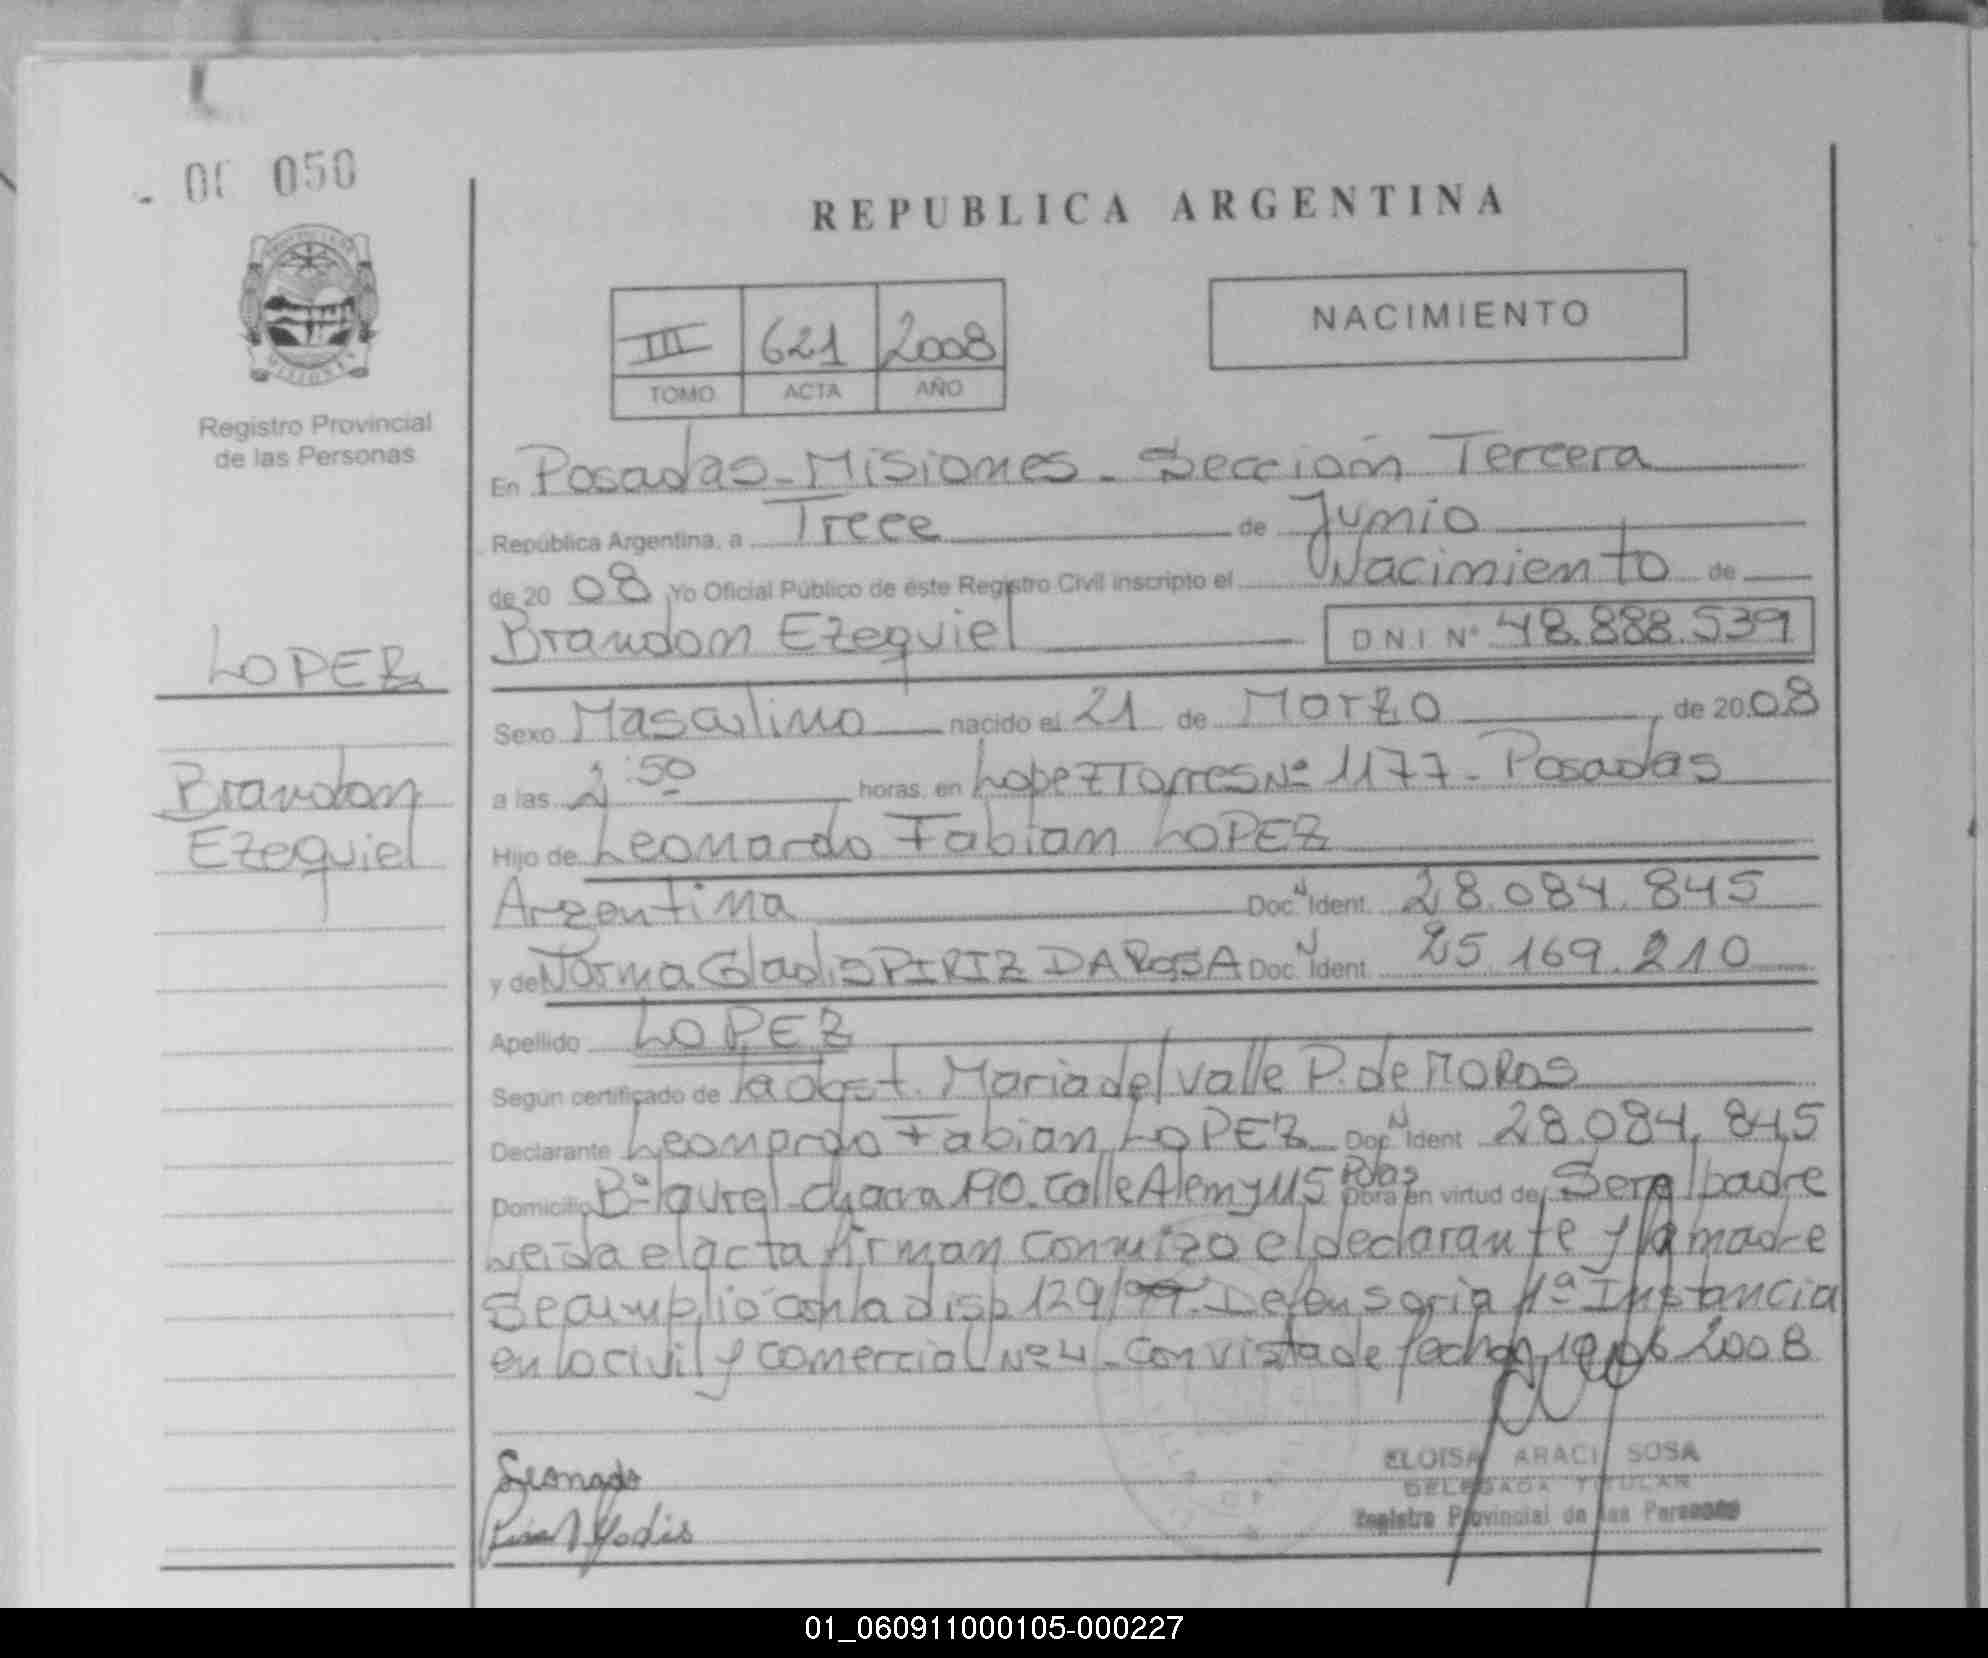 050
REPUBLICA ARGENTINA
NACIMIENTO
III 621 2008
TOMO ACTA AÑO
Registro Provincial
de las Personas
En Posadas - Misiones - Sección Tercera
República Argentina, a Trece de Junio
de 20 08 Yo Oficial Público de éste Registro Civil inscripto el Nacimiento de
Brandon Ezequiel D N I Nº 48.888.539
LOPEZ
Brandon
Ezequiel
Sexo Masculino nacido el 21 de Marzo de 20 08
a las 2:50 horas, en Lopez Torres Nº 1177 - Posadas
Hijo de Leonardo Fabian LOPEZ
Argentina Doc. N Ident. 28.084.845
y de Norma Gladis PIRIZ DA ROSA Doc. N Ident. 25.169.210
Apellido LOPEZ
Según certificado de la obst. Maria del Valle P. de
Declarante Leonardo Fabian LOPEZ Doc. N Ident 28.084.845
Domicilio Bº laurel - chacra 190. Calle Alem y 115 Pdas Obra en virtud de Ser el padre
Leida el acta firman conmigo el declarante y la madre
Se cumplio con la disp 129/99. Defensoria 1ª Instancia
en lo civil y comercial Nº 4 - Con vista de fecha 2008
Leonado
ELOISA ARACI SOSA
DELEGADA TITULAR
Registro Provincial de las Personas
01_060911000105-000227